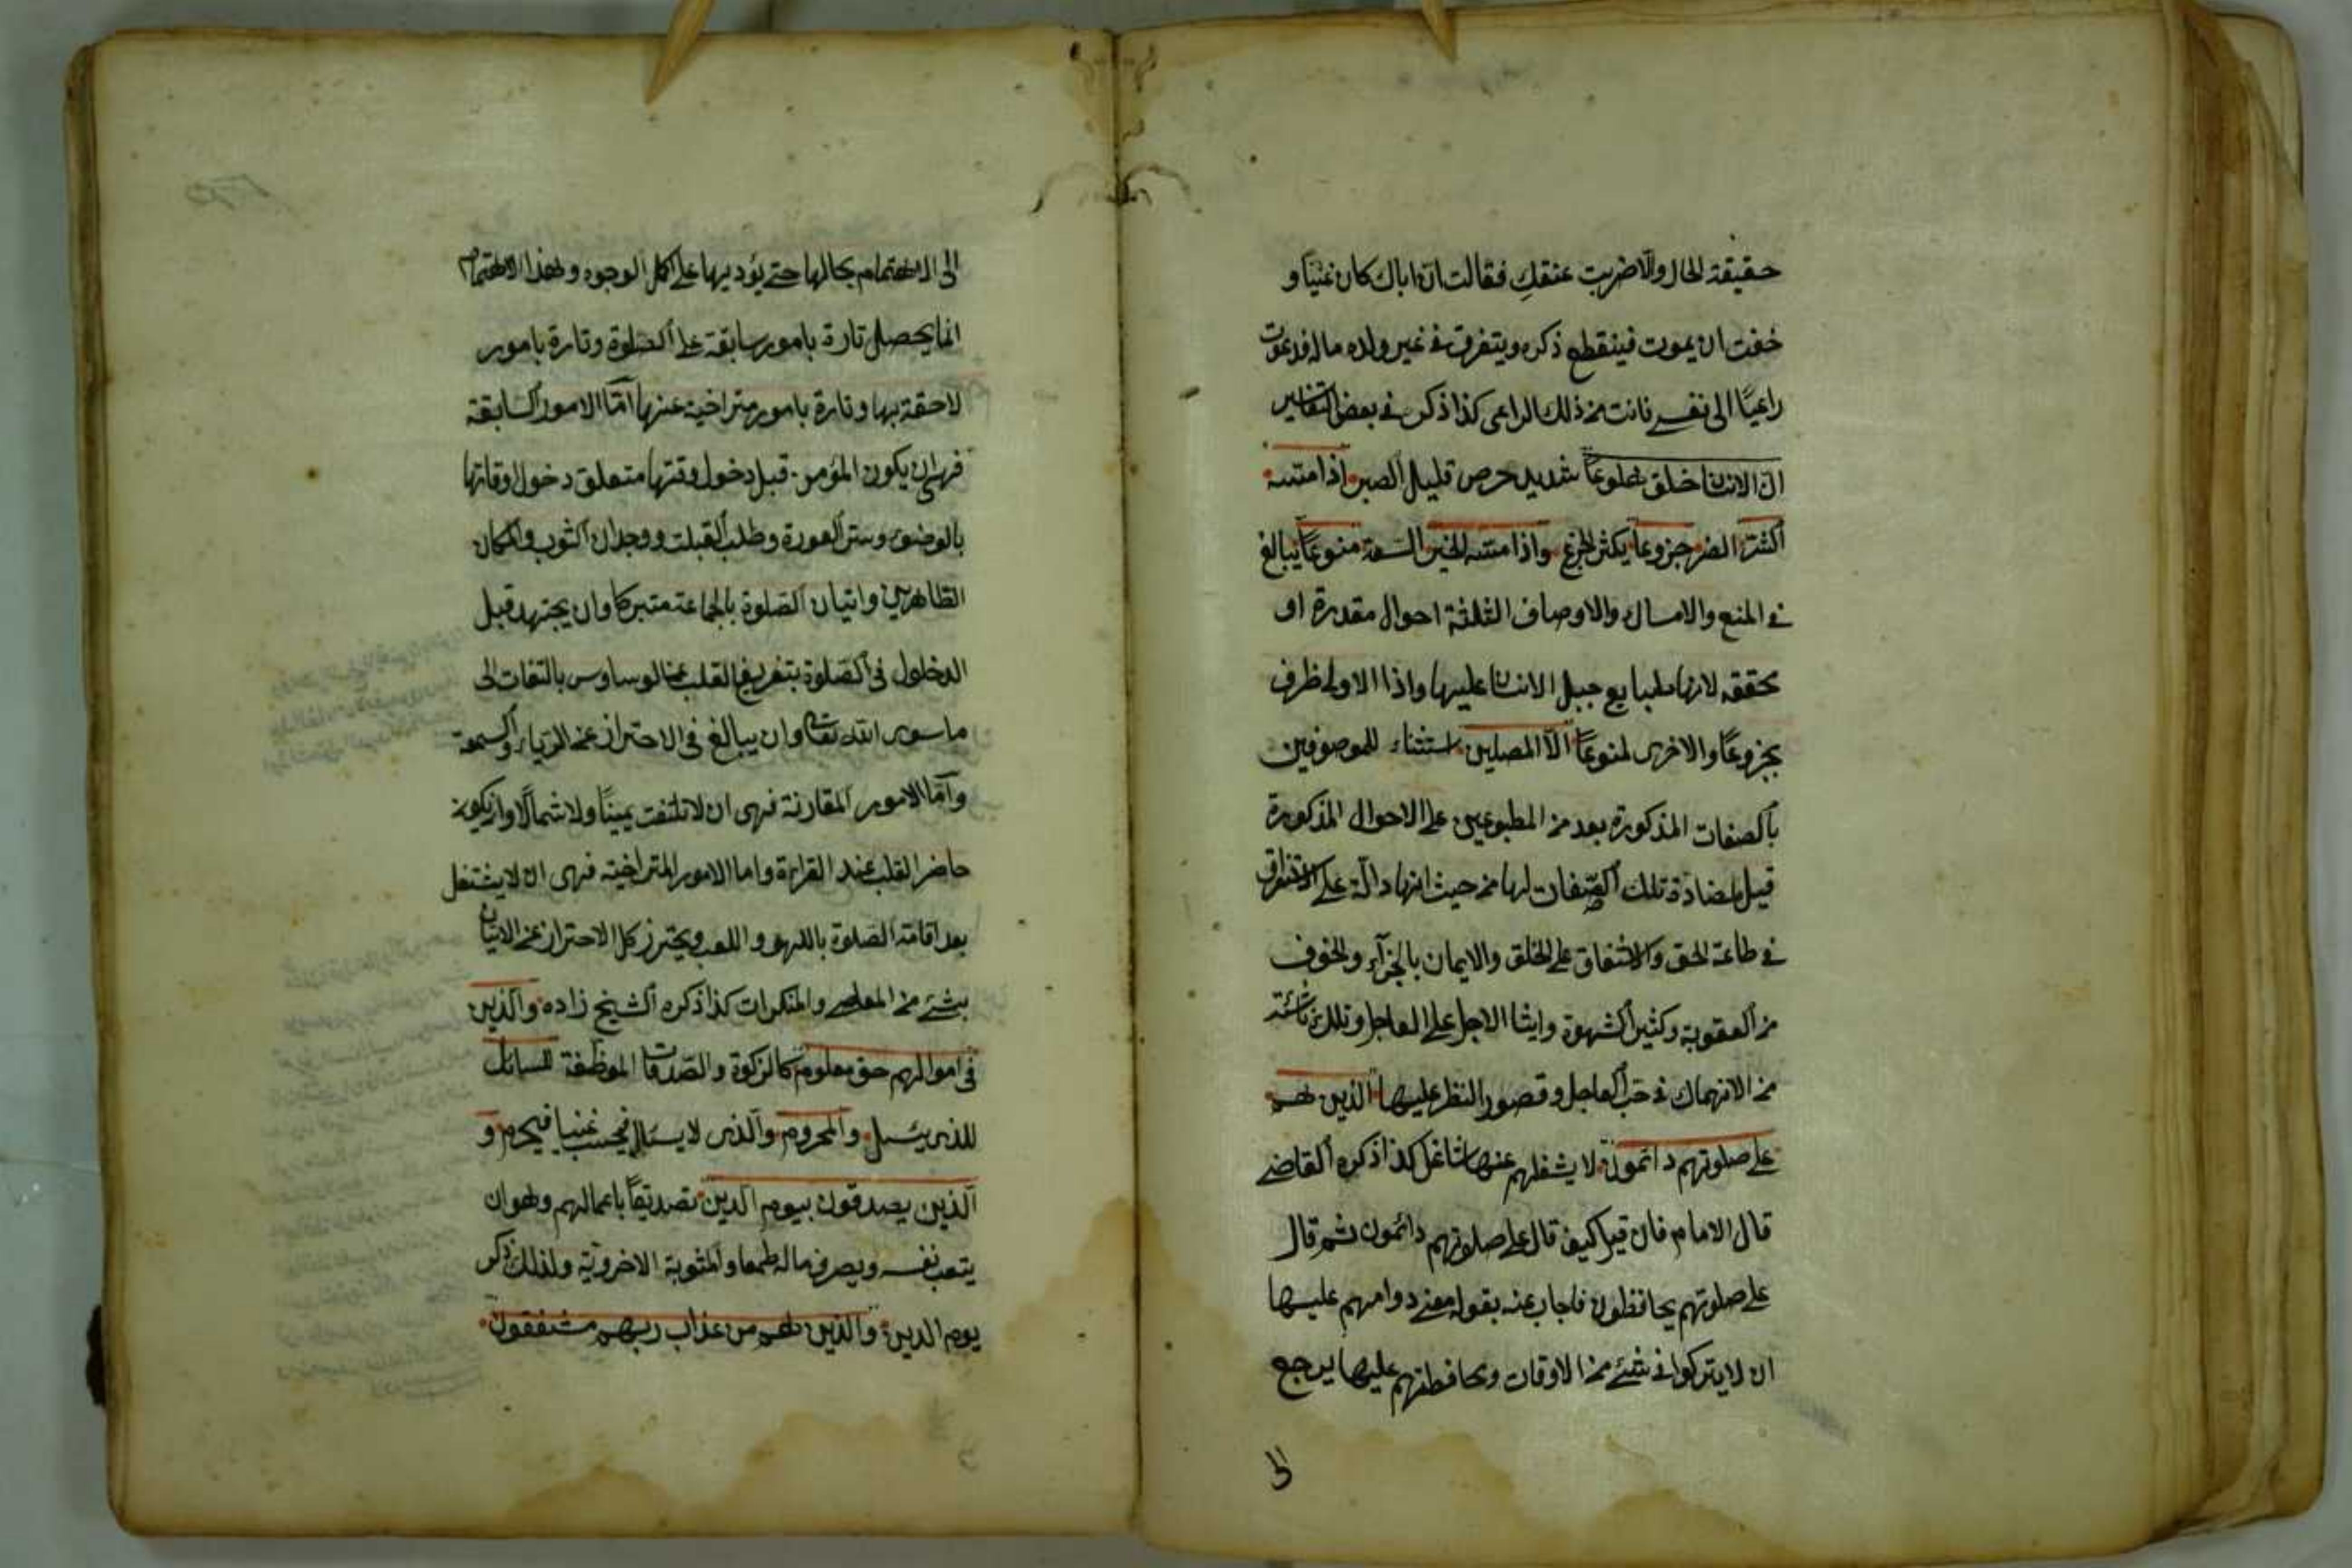 حقيقة الحال والا ضربت عنقك فقالت ان اباك كان غنيا و
خفت ان يموت فينقطع ذكره ويتفرق في غير ولده ماله فدعوت
راعيا الى نفسي فانت من ذلك الراعي كذا ذكر في بعض التفاسير
ان الانسان خلق هلوعا شديد حرص قليل الصبر اذا مسه
الشر الضر جزوعا يكثر الجزع واذا مسه الخير السعة منوعا يبالغ
في المنع والامساك والاوصاف الثلثة احوال مقدرة او
محققه لانها طبايع جبل الانسان عليها واذا الاولى ظرف
بجزوعا والاخرى لمنوعا الا المصلين استثناء للموصوفين
بالصفات المذكورة بعد من المطبوعين على الاحوال المذكورة
قيل لمضادة تلك الصفات لها من حيث انها دالة على الاستغراق
في طاعة الحق والاشفاق على الخلق والايمان بالجزآء والخوف
من العقوبة وكثير الشهوة وايثا الاجل على العاجل وتلك ناشئة
من الانهماك في حب العاجل وقصور النظر عليها الذين هم
على صلوتهم دائمون لا يشغلهم عنها شاغل كذا ذكره القاضي
قال الامام فان قيل كيف قال على صلوتهم دائمون ثم قال
على صلوتهم يحافظون فاجاب عنه بقوله معنى دوامهم عليها
ان لا يتركوا في شئ من الاوقات ومحافظتهم عليها يرجع
الى
الى الاهتمام بحالها حتى يؤديها على اكمل الوجوه وهذا الاهتمام
انما يحصل تارة بامور سابقة على الصلوة وتارة بامور
لاحقة بها وتارة بامور متراخية عنها اما الامور السابقة
فهي ان يكون المؤمن قبل دخول وقتها متعلق دخول اوقاتها
بالوضوء وستر العورة وطلب القبلت ووجدان الثوب والمكان
الطاهرين واتيان الصلوة بالجماعة متبركا وان يجتهد قبل
الدخول في الصلوة بتفريغ القلب عن الوساوس بالتفات الى
ما سوى الله تعالى وان يبالغ في الاحتراز عن الرياء والسمعة
واما الامور المقارنة فهي ان لا تلتفت يمينا ولا شمالا وان يكون
حاضر القلب عند القراءة واما الامور المتراخيته فهي ان لا يشتغل
بعد اقامة الصلوة باللهو واللعب ويحترز كل الاحتراز عن الاتيان
بشئ من المعاصي والمنكرات كذا ذكره الشيخ زاده والذين
في اموالهم حق معلوم كالزكوة والصدقات الموظفة للسائل
للذي يسئل والمحروم والذي لا يسئال فيحسب غنيا فيحرم و
الذين يصدقون بيوم الدين تصديقا باعمالهم وهو ان
يتعب نفسه ويصرف ماله طمعا والمثوبة الاخروية ولذلك ذكر
يوم الدين والذين هم من عذاب ربهم مشفقون